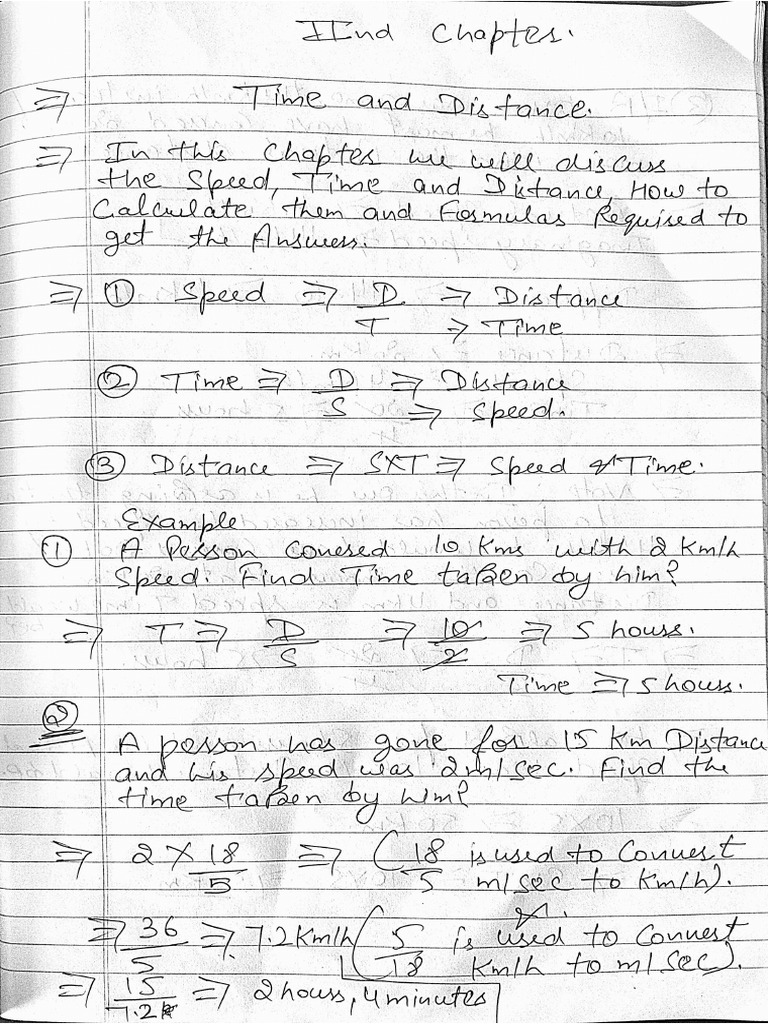 IInd Chapter.
⇒ Time and Distance.
⇒ In this Chapter we will discuss
the Speed, Time and Distance, How to
Calculate them and Formulas Required to
get the Answers.
⇒ ① Speed ⇒ D/T ⇒ Distance
⇒ Time
② Time ⇒ D/S ⇒ Distance
⇒ Speed.
③ Distance ⇒ S×T ⇒ Speed & Time.
Example
① A Person Covered 10 Kms with 2 Km/h
Speed. Find Time taken by him?
⇒ T ⇒ D/S ⇒ 10/2 ⇒ 5 hours.
Time ⇒ 5 hours.
②
A person has gone for 15 Km Distance
and his speed was 2m/sec. Find the
time taken by him?
⇒ 2 × 18/5 ⇒ (18/5 is used to Convert
m/sec to Km/h).
⇒ 36/5 ⇒ 7.2 Km/h (5/18 is used to Convert
Km/h to m/sec).
⇒ 15/7.2 ⇒ 2 hours, 4 minutes